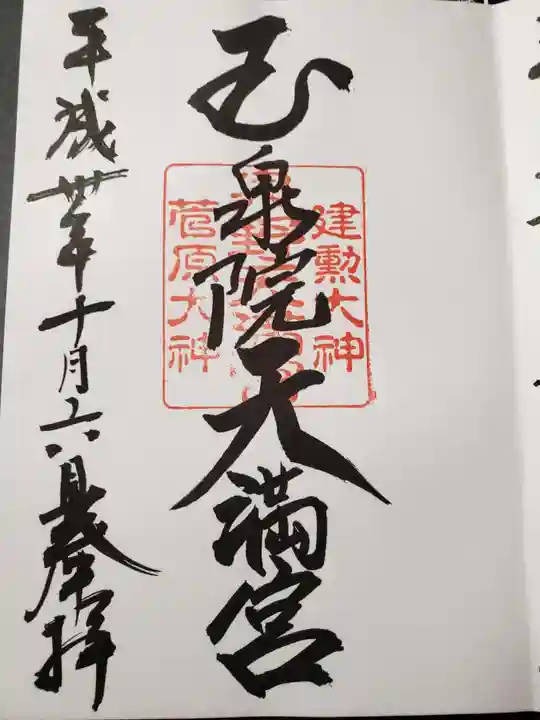 建勲大神
菅原大神
玉泉院天満宮
平成卅年十月二六日奉拝